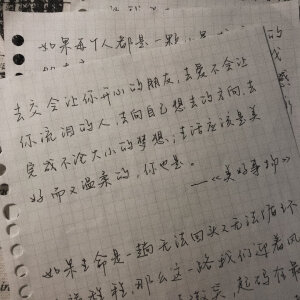 如果每个人都是一颗
的
我
感
去交会让你开心的朋友,去爱不会让
你流泪的人,去向自己想去的方向,去
完成不论大小的梦想,生活应该是美
好而又温柔的,你也是。
——《美好事物》
如果生命是一趟无法回头又无法
旅程,那么这一路我们迎着风
起码在最